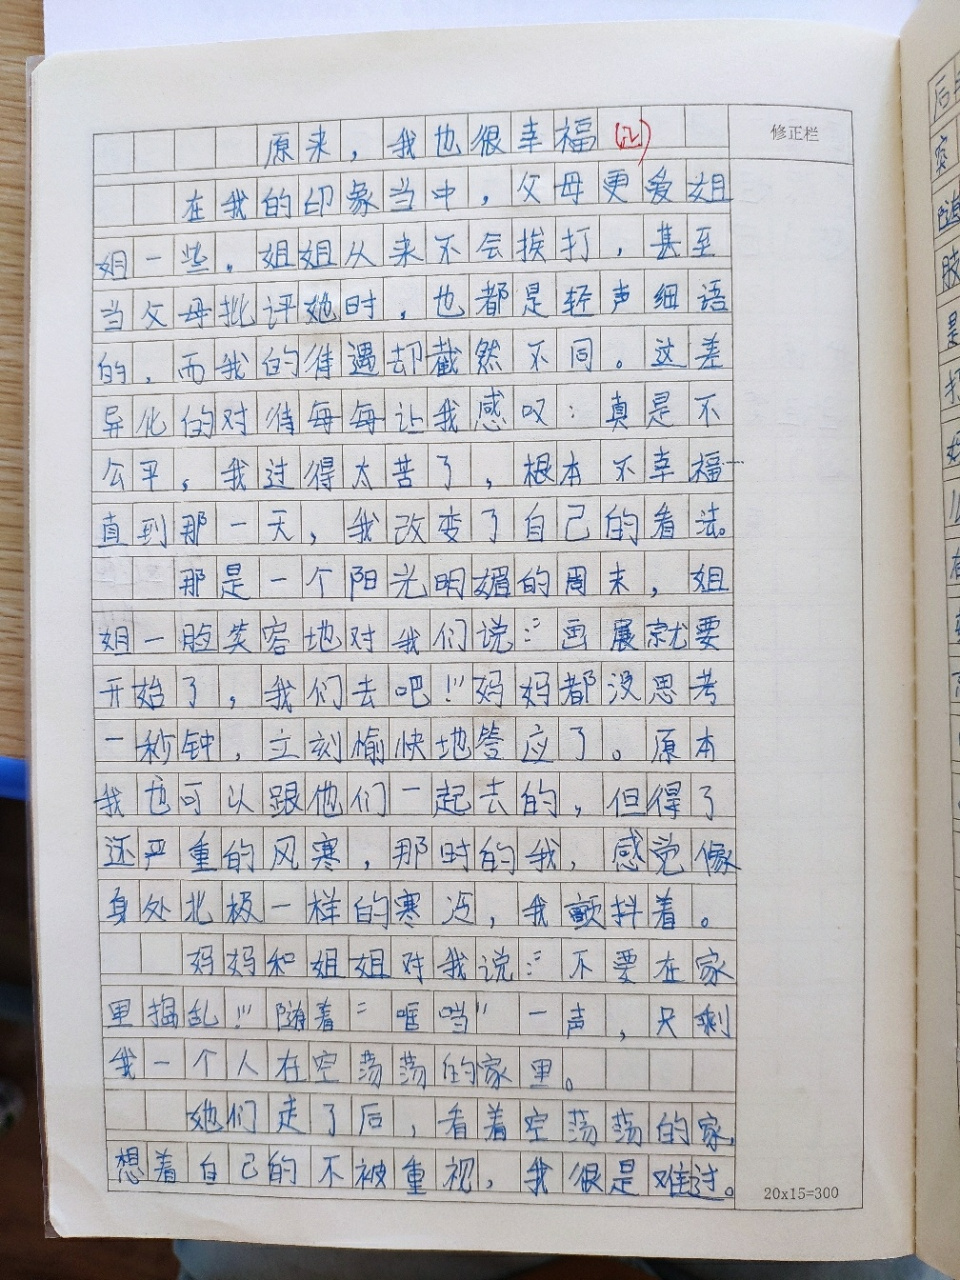 原来，我也很幸福
修正栏
在我的印象当中，父母更爱姐
姐一些，姐姐从来不会挨打，甚至
当父母批评她时，也都是轻声细语
的，而我的待遇却截然不同。这差
异化的对待每每让我感叹：真是不
公平，我过得太苦了，根本不幸福…
直到那一天，我改变了自己的看法。
那是一个阳光明媚的周末，姐
姐一脸笑容地对我们说：“画展就要
开始了，我们去吧！”妈妈都没思考
一秒钟，立刻愉快地答应了。原本
我也可以跟他们一起去的，但得了
还严重的风寒，那时的我，感觉像
身处北极一样的寒冷，我颤抖着。
妈妈和姐姐对我说：“不要在家
里捣乱！”随着“哐当”一声，只剩
我一个人在空荡荡的家里。
她们走了后，看着空荡荡的家，
想着自己的不被重视，我很是难过。
20x15=300